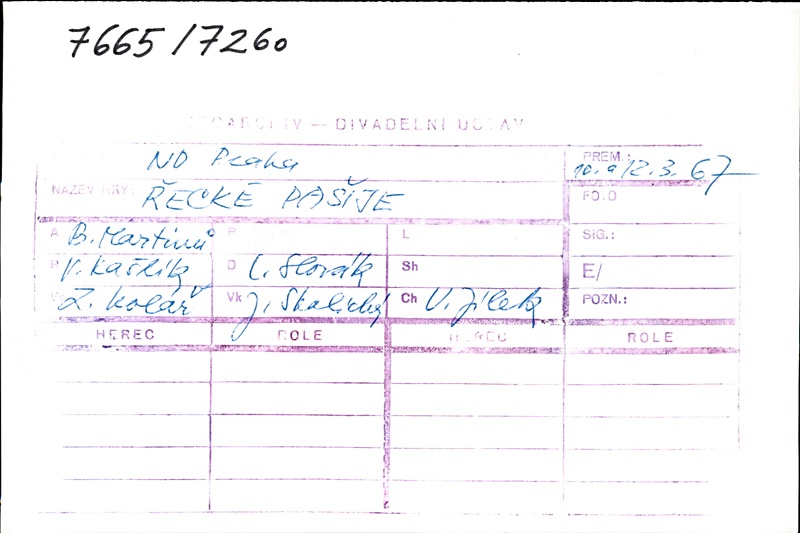 7665/7260
FOTOARCHIV — DIVADELNÍ ÚSTAV
ND Praha PREM.: 10. a 12.3. 67
NÁZEV HRY: ŘECKÉ PAŠIJE FOTO
A B. Martinů P L SIG.:
R V. Kašlík D L. Slovák Sh E/
V Z. Kolář Vk J. Skalický Ch V. Jílek POZN.:
HEREC ROLE HEREC ROLE